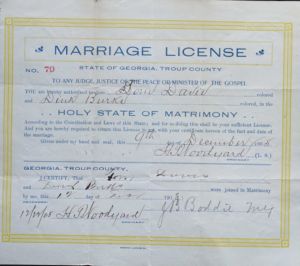 MARRIAGE LICENSE
STATE OF GEORGIA, TROUP COUNTY
NO. 70
TO ANY JUDGE, JUSTICE OF THE PEACE OR MINISTER OF THE GOSPEL
YOU are hereby authorized to join Davis colored
and Burks colored, in the
HOLY STATE OF MATRIMONY
According to the Constitution and Laws of this State; and for so doing this shall be your sufficient License.
And you are hereby required to return this License to me, with your certificate hereon of the fact and date of the marriage.
Given under my hand and seal, this 9th December
H. T. Woodyard (L. S.)
GEORGIA, TROUP COUNTY.
I CERTIFY, That
and were joined in Matrimony
by me, this 190
H T Woodyard J B Boddie